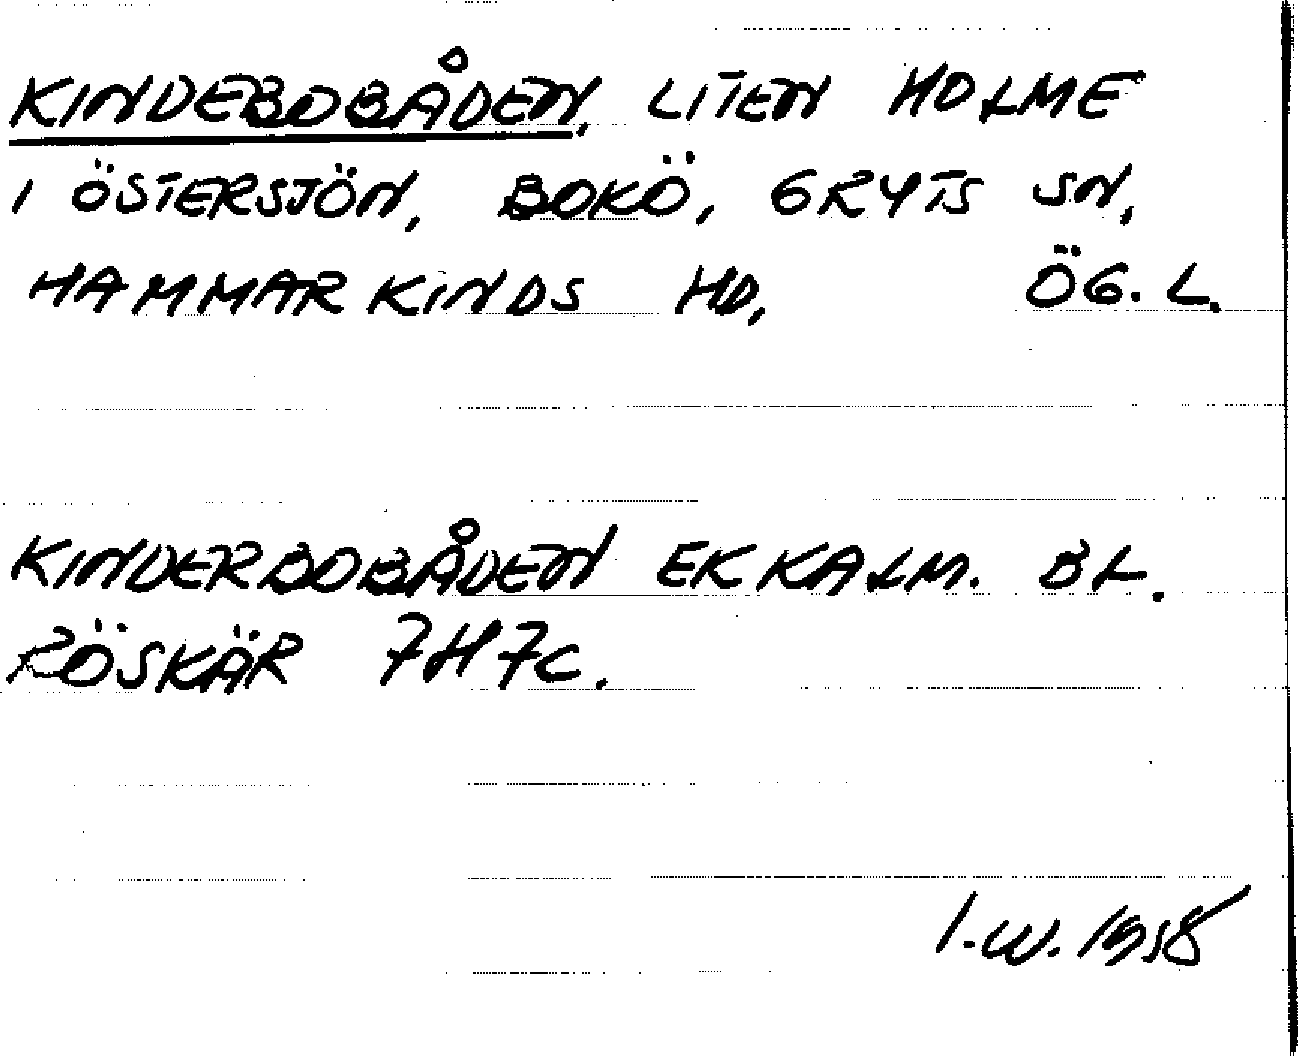 KINDEBOBÅDEN, LITEN HOLME
I ÖSTERSJÖN, BOKÖ, GRYTS SN,
HAMMARKINDS HD, ÖG. L.
KINDERBOBÅDEN EK KALM. BL.
RÖSKÄR 7H7c.
I.W. 1958